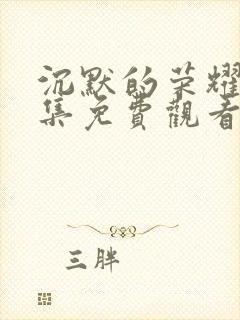 沉默的荣耀
集免費觀看
三胖